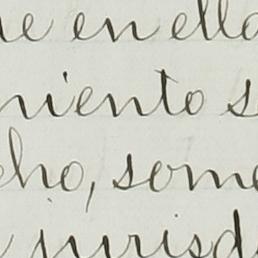 ue en ella
niento s
cho, some
jurisd